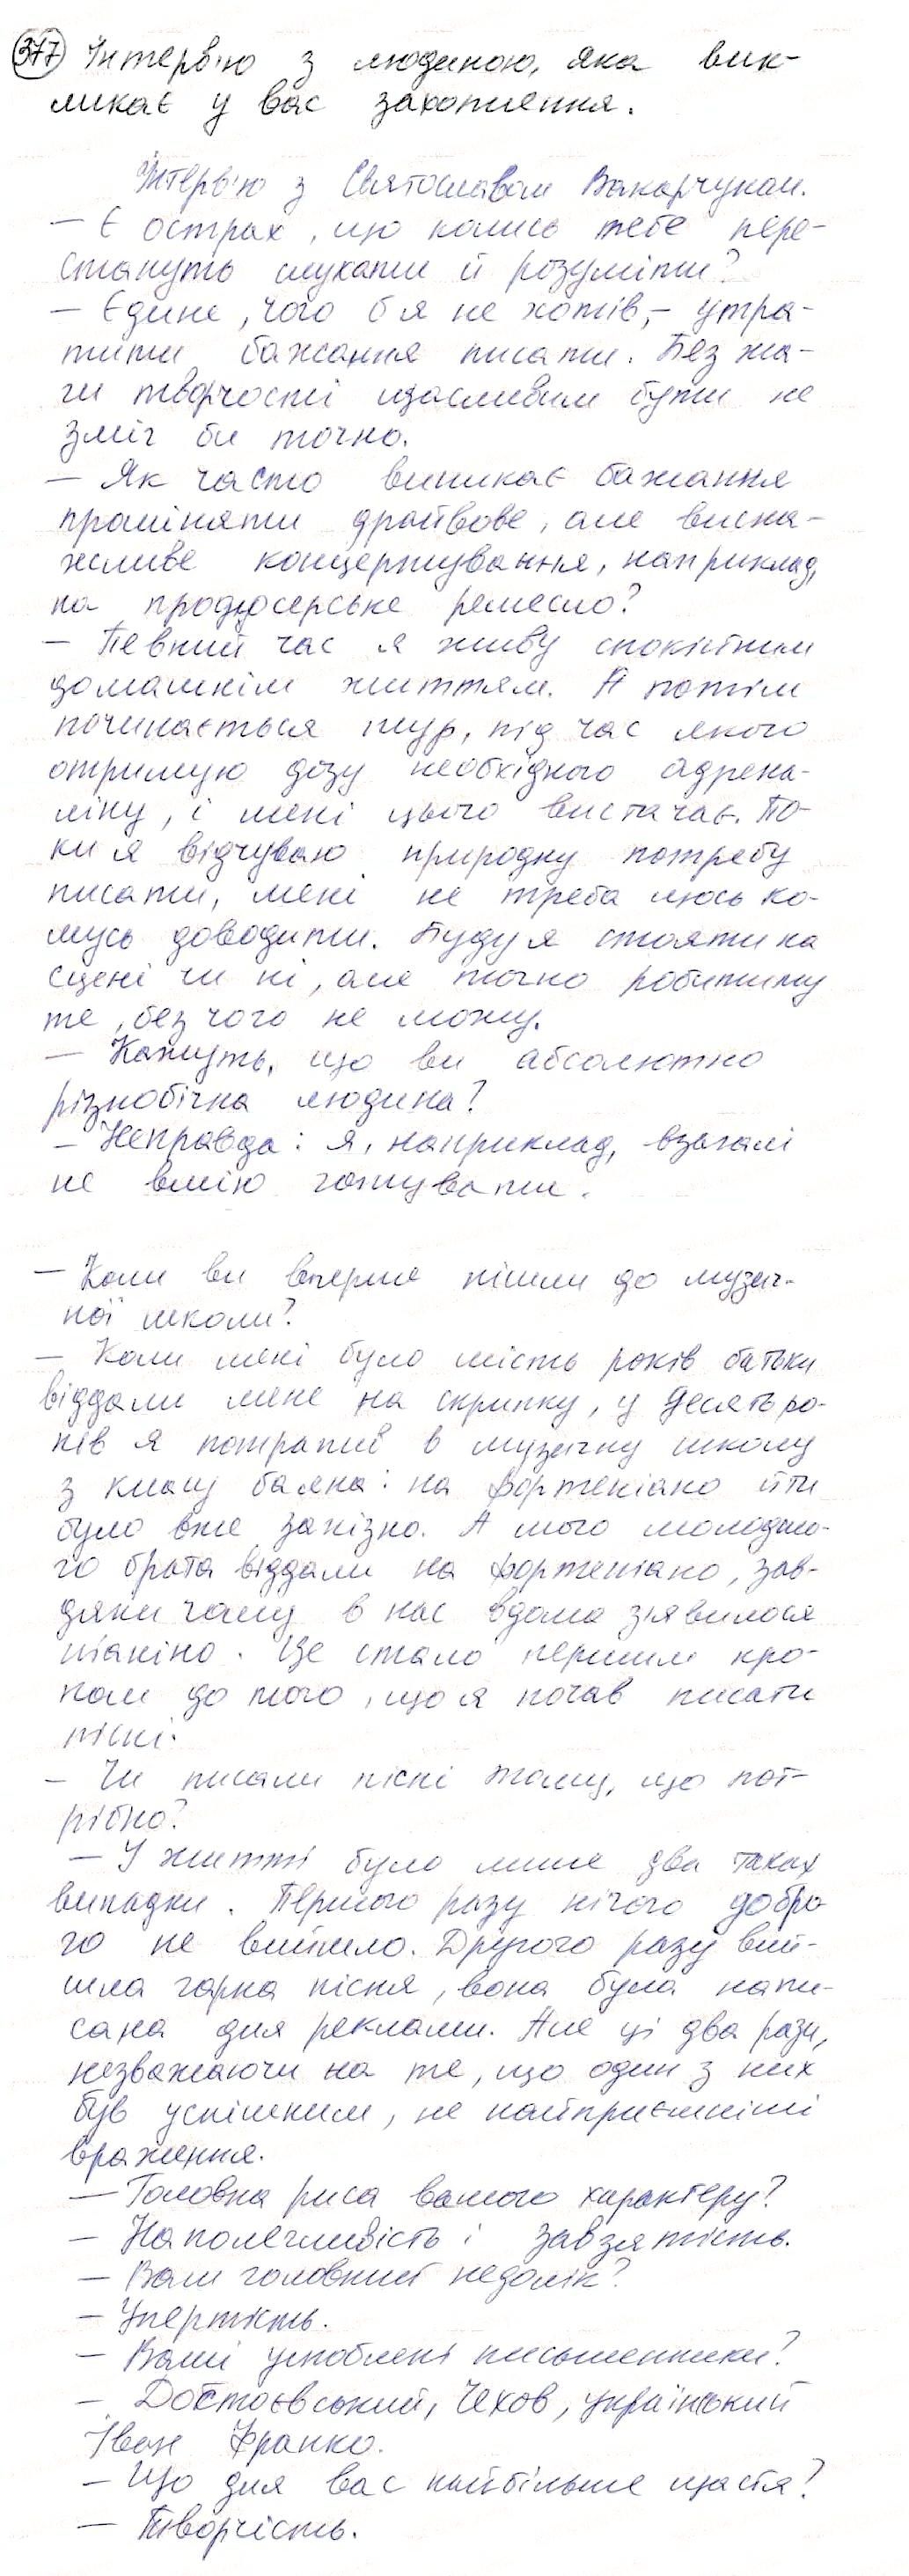 377 Інтерв'ю з людиною, яка вик-
ликає у вас захоплення.
Інтерв'ю з Святославом Вакарчуком.
– Є острах, що колись тебе пере-
стануть слухати й розуміти?
– Єдине, чого б я не хотів,– утра-
тити бажання писати. Без жа-
ги творчості щасливим бути не
зміг би точно.
– Як часто виникає бажання
проміняти драйвове, але висна-
жливе концертування, наприклад,
на продюсерське ремесло?
– Певний час я живу спокійним
домашнім життям. А потім
починається тур, під час якого
отримую дозу необхідного адрена-
ліну, і мені цього вистачає. По-
ки я відчуваю природну потребу
писати, мені не треба щось ко-
мусь доводити. Буду я стояти на
сцені чи ні, але точно робитиму
те, без чого не можу.
– Кажуть, що ви абсолютно
різнобічна людина?
– Неправда: я, наприклад, взагалі
не вмію готувати.
– Коли ви вперше пішли до музич-
ної школи?
– Коли мені було шість років батьки
віддали мене на скрипку, у десять ро-
ків я потрапив в музичну школу
з класу баяна: на фортепіано йти
було вже запізно. А мого молодшо-
го брата віддали на фортепіано, зав-
дяки чому в нас вдома з'явилося
піаніно. Це стало першим кро-
ком до того, що я почав писати
пісні.
– Чи писали пісні тому, що пот-
рібно?
– У житті було лише два таких
випадки. Першого разу нічого добро-
го не вийшло. Другого разу вий-
шла гарна пісня, вона була напи-
сана для реклами. Але ці два рази,
незважаючи на те, що один з них
був успішним, не найприємніші
враження.
– Головна риса вашого характеру?
– Наполегливість і завзятість.
– Ваш головний недолік?
– Упертість.
– Ваші улюблені письменники?
– Достоєвський, Чехов, український
Іван Франко.
– Що для вас найбільше щастя?
– Творчість.